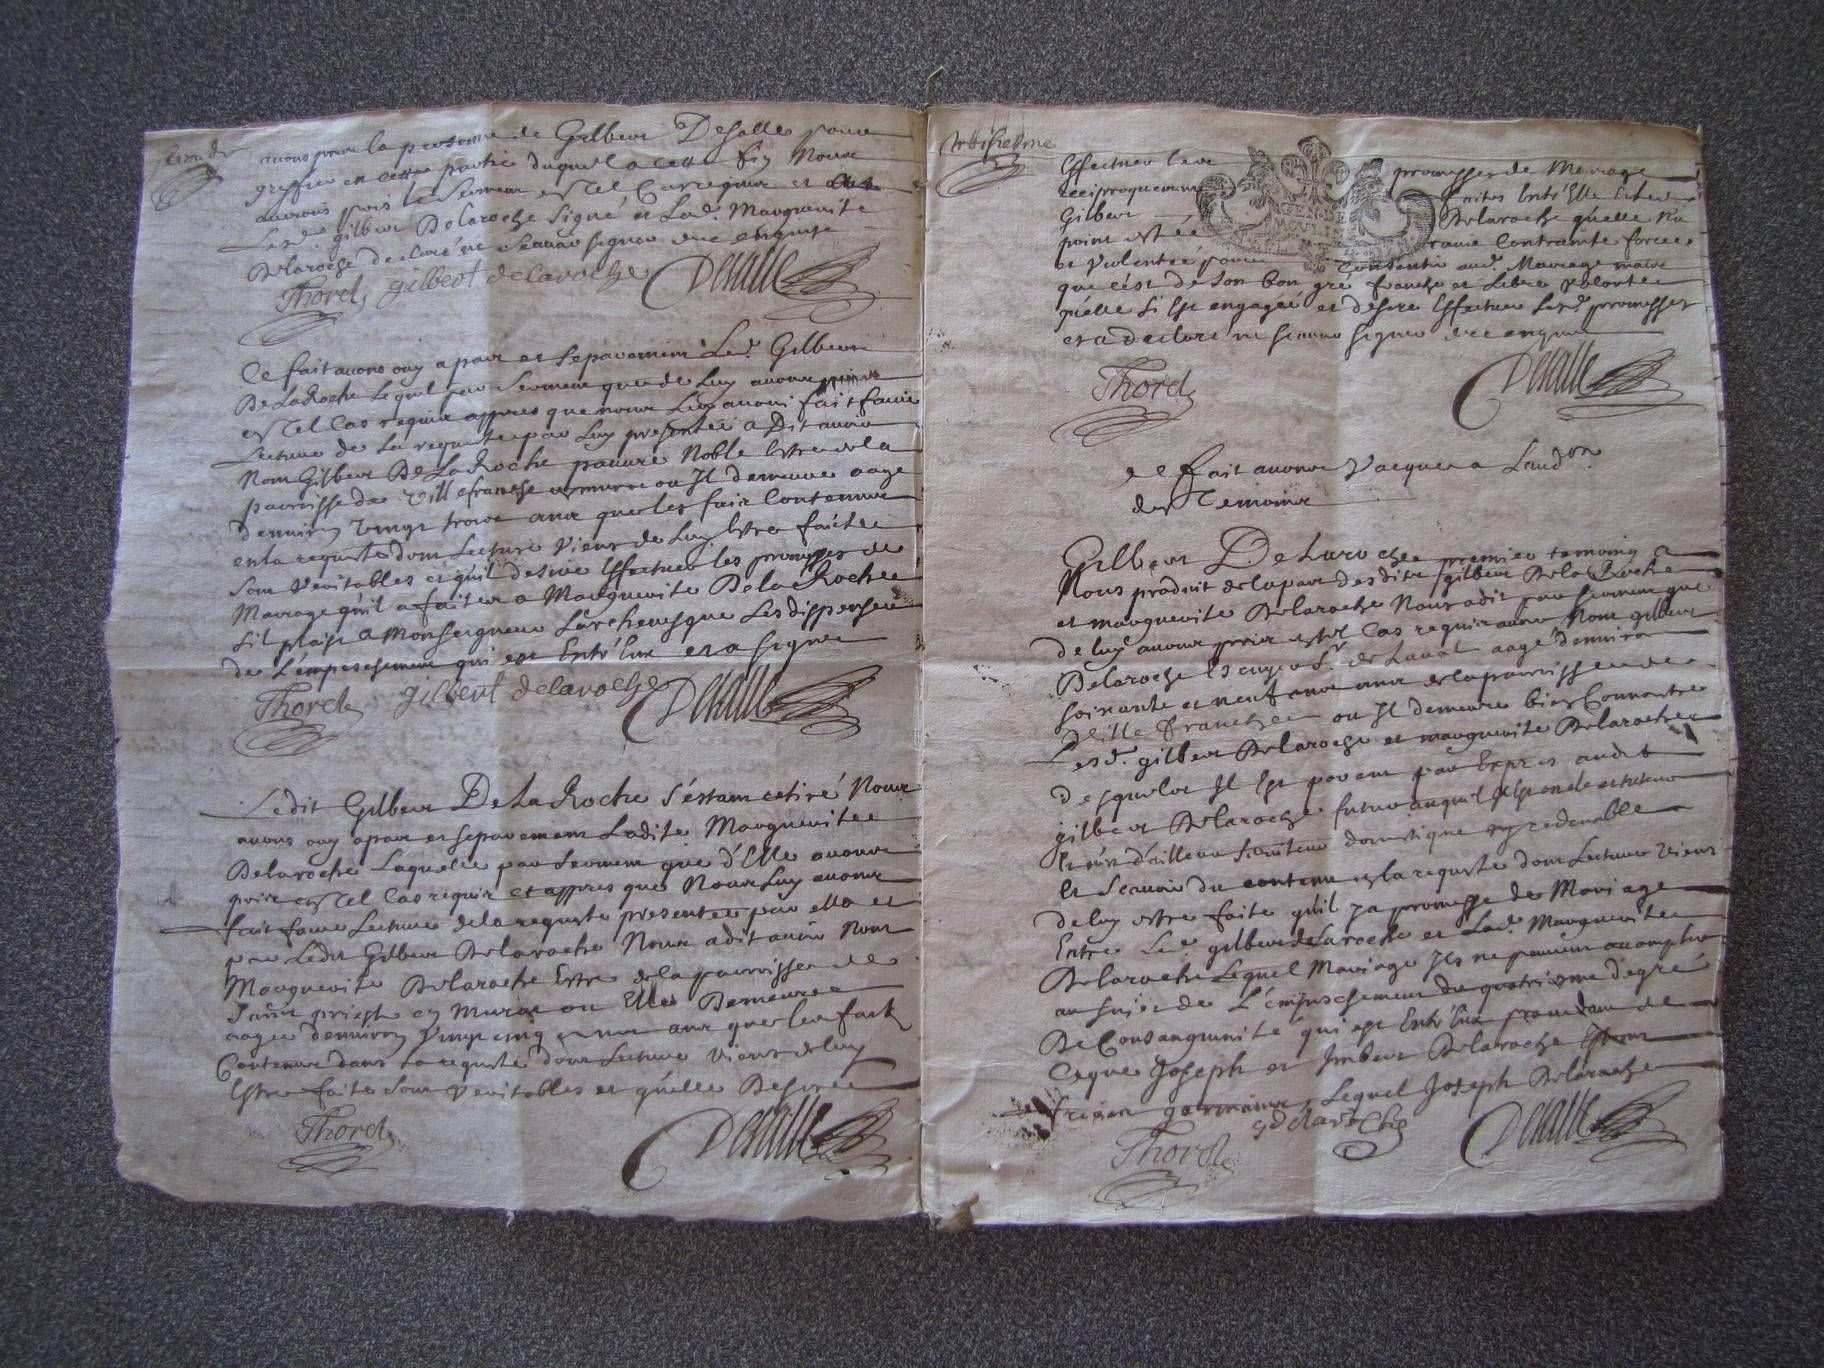 avons pour la personne de Gilbert Desalles pour
greffier en cette partie duquel a cette fin Nous
avons pris le serment en tel Cas requis et
Led. gilbert Delaroche signé et Lad. Marguerite
Delaroche declaré ne scavoir signer de ce enquise
Thorel gilbert delaroche Desalle
Ce fait avons ouy apart et separement Led. Gilbert
De La Roche Lequel par serment que de Luy avons prins
en Tel Cas requis appres que nous Luy avons fait faire
Lecture de La requeste par Luy presentée a Dit avoir
Nom Gilbert De La Roche pauvre Noble Estre de la
parroisse de Villefranche ou Il demeure aage
denviron vingt trois ans que les fais Contenus
en la requeste dont Lecture Vient de Luy Estre faitte
sont veritables et qu'il desire Effectuer les promesses de
Mariage qu'il a faites a Marguerite De la Roche
s'il plaist a Monseigneur L'archevesque Les dispenser
de L'empeschement qui est Entr'Eux et a signé
Thorel gilbert delaroche Desalle
Ledit Gilbert De La Roche s'estant retiré Nous
avons ouy apart et separement Ladite Marguerite
Delaroche Laquelle par serment que d'Elle avons
pris en Tel Cas requis et appres que Nous Luy avons
fait faire Lecture de la requeste presentée par elle et
par Ledit Gilbert Delaroche Nous a dit avoir Nom
Marguerite Delaroche Estre de la parroisse de
Saint priest en Murat ou Elle Demeure
aagée denviron Vingt cinq ans que les fait
Contenus dans la requeste dont Lecture vient de luy
Estre faite sont veritables et qu'elle Desire
Thorel Desalle
troisiesme
Effectuer les promesses de Mariage
reciproquement faites Entr'Elle et led.
Gilbert Delaroche quelle n'a
point esté contrainte forcée
et violentée pour Consentir aud. Mariage mais
que c'est de son bon gré franche et Libre volonté
qu'elle s'i est engagée et desire Effectuer lesd. promesses
et a declaré ne scavoir signer de ce enquise
GEN. DE
MOULINS
Thorel Desalle
Ce fait avons Vacquer a Laud.on
des Temoins
Gilbert Delaroche premier temoing
Nous produit de la part desdits gilbert De la Roche
et marguerite Delaroche Nous a dit par serment que
de luy avons pris en tel Cas requis avoir Nom gilbert
Delaroche Escuyer Sr. de Laval aagé denviron
soixante et neuf ans de la parroisse de
Ville franche ou Il demeure bien Connoitre
Lesd. gilbert Delaroche et marguerite Delaroche
desquelles Il Est parent
gilbert Delaroche futur auquel
n'estre d'ailleurs serviteur domestique ny redevable
Et scavoir du contenu en la requeste dont Lecture vient
de luy estre faite qu'il y a promesse de Mariage
Entre Led. gilbert delaroche et Lad. Marguerite
Delaroche Lequel Mariage Ils ne peuvent accomplir
au sujet de L'empeschement du quatriesme degré
De Consanguinité qui est Entr'Eux provenant de
ce que Joseph et Imbert Delaroche Estoient
freres germains, Lequel Joseph Delaroche
Thorel Desalle